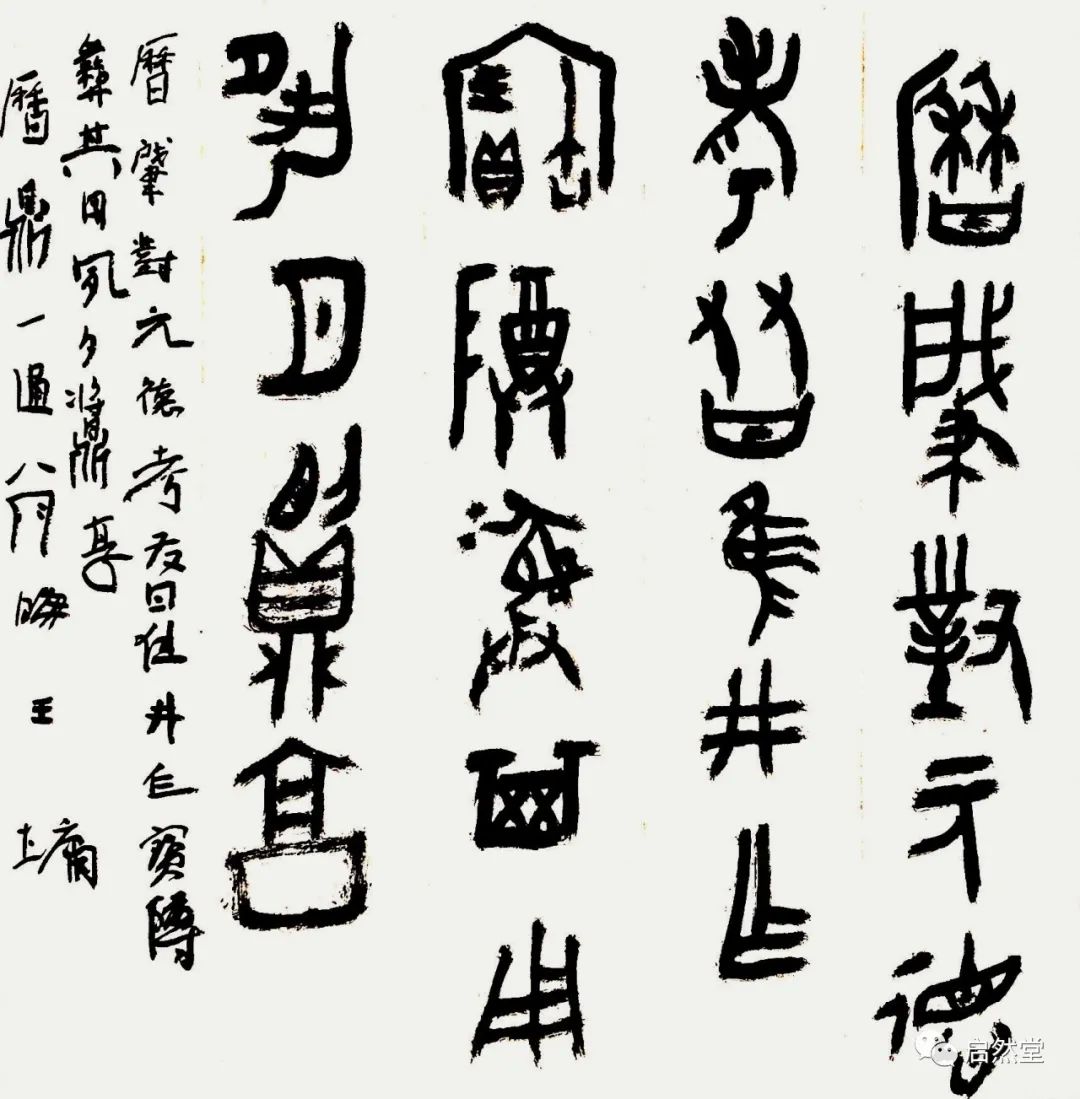 曆肇對元德
考友隹井乍
寶隣彝其用
夙夕𩱧享
曆肇對元德考友隹井乍寶障
彝其用夙夕𩱧享
曆鼎一通 王
启然堂